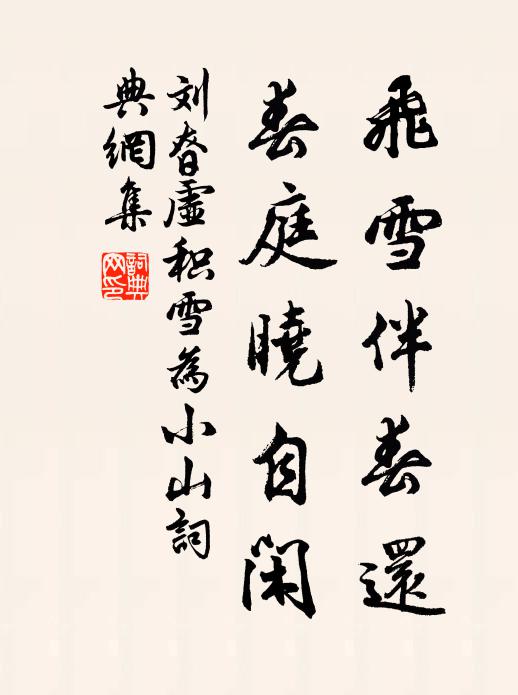 飛雪伴春還
春庭曉自閑
刘眘虛积雪為小山詞
典網集
詞典网印